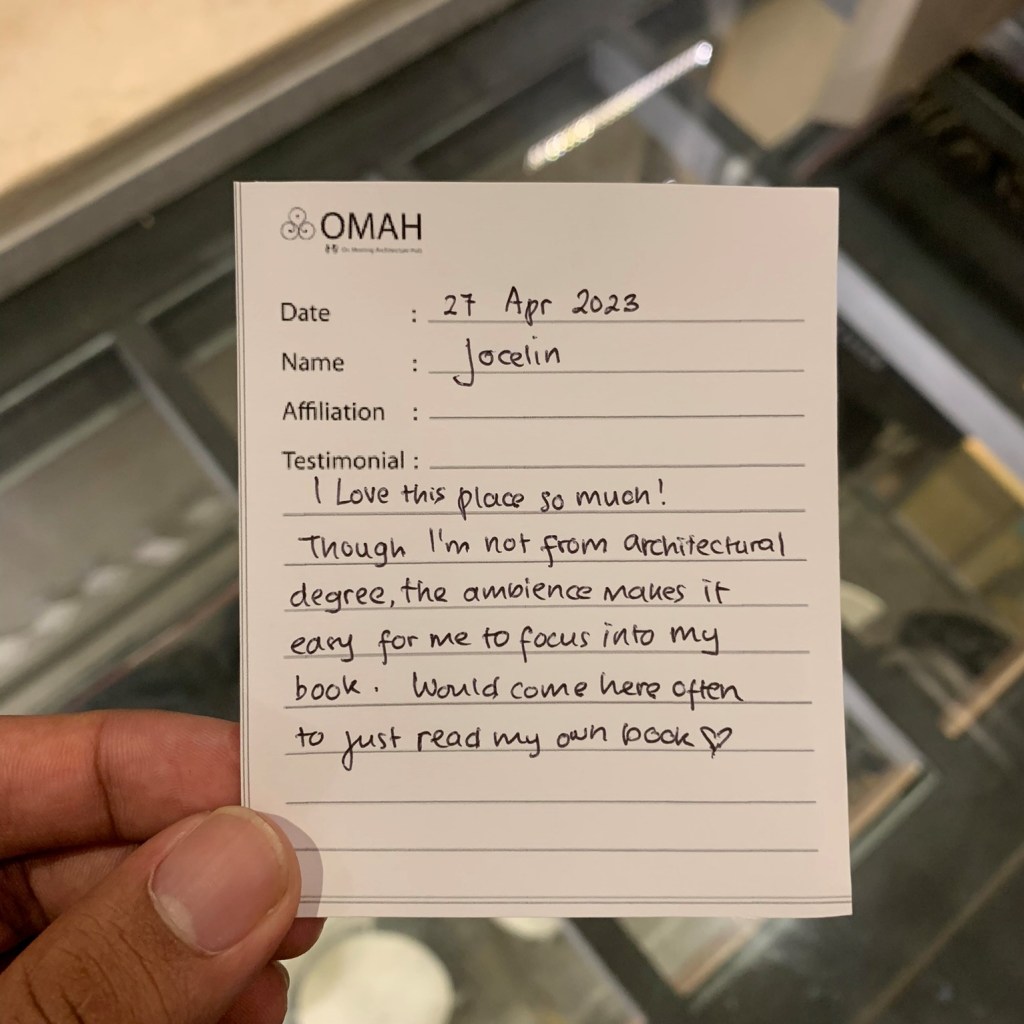 OMAH
Date : 27 Apr 2023
Name : Jocelin
Affiliation :
Testimonial :
I Love this place so much!
Though I'm not from architectural
degree, the ambience makes it
easy for me to focus into my
book. Would come here often
to just read my own book ♡